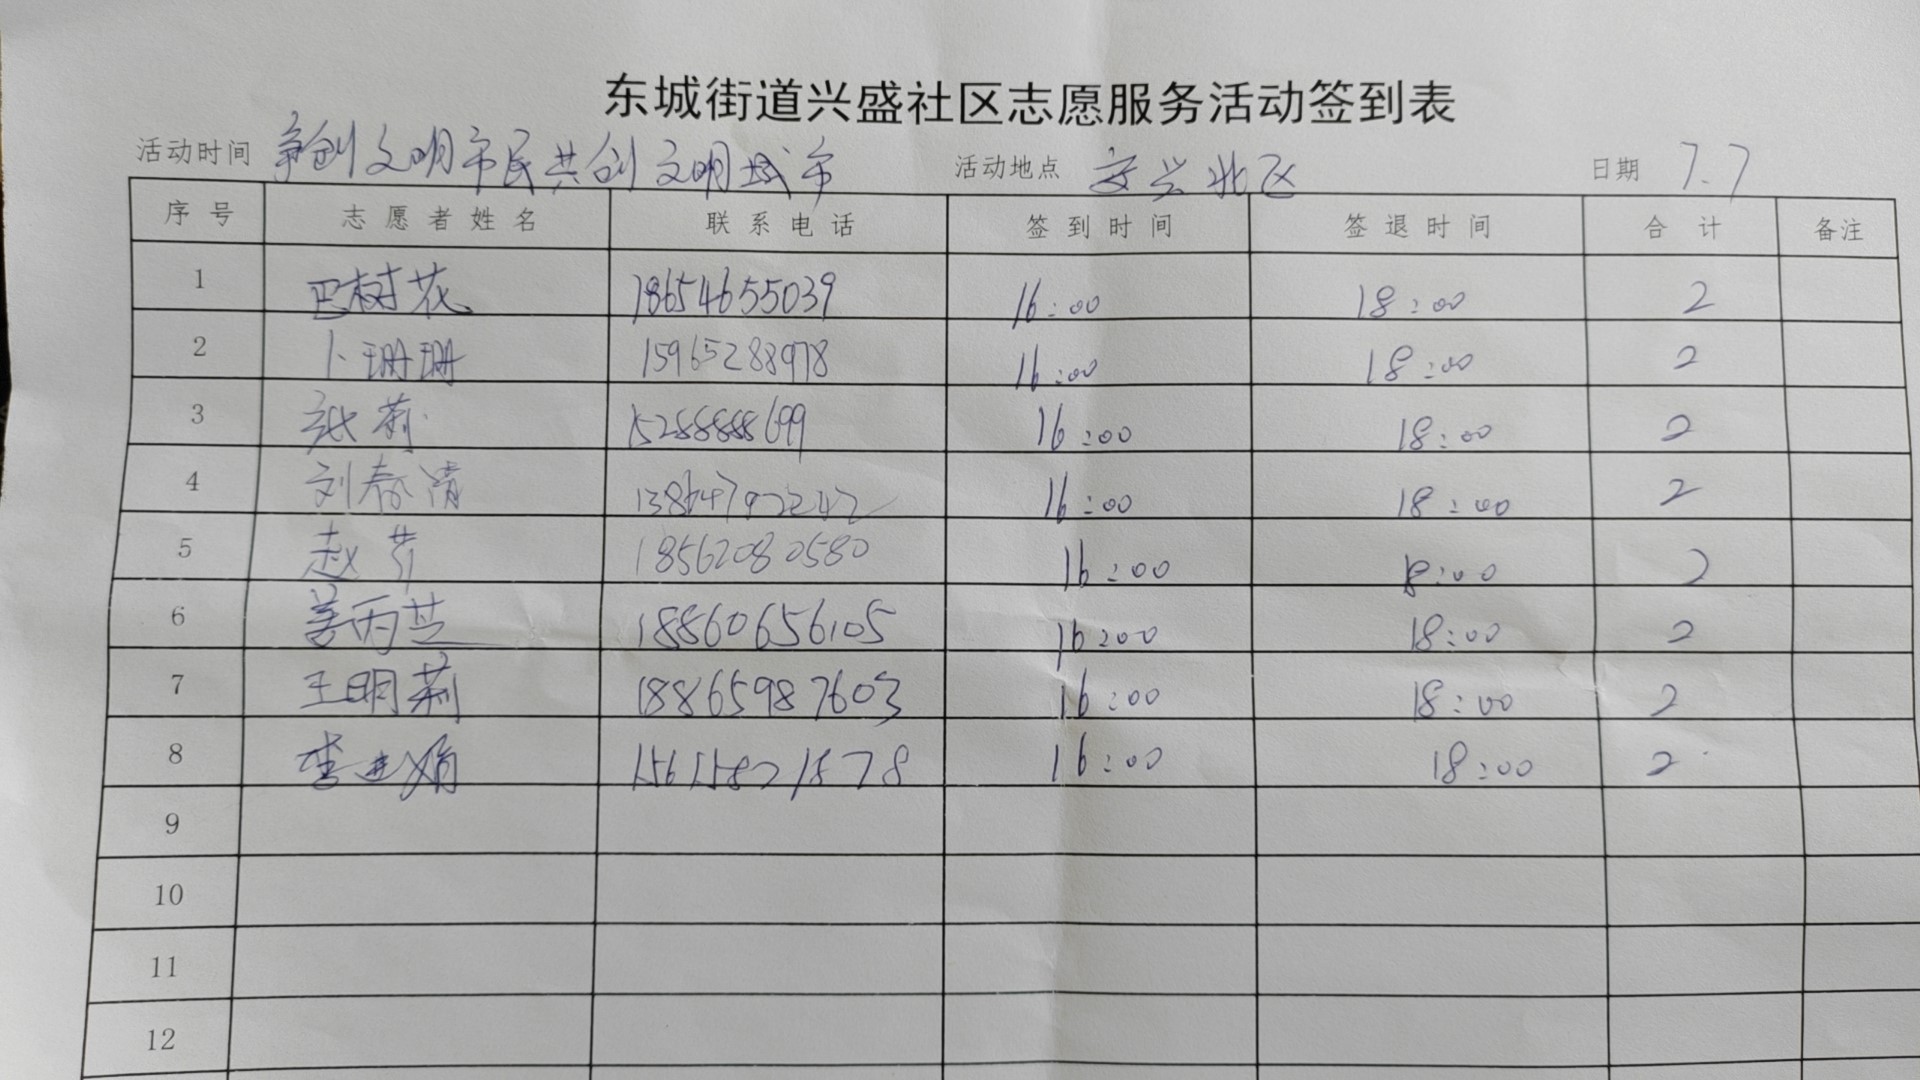 东城街道兴盛社区志愿服务活动签到表
活动时间 争创文明市民共创文明城市 活动地点 安兴北区 日期 7.7
序号 志愿者姓名 联系电话 签到时间 签退时间 合计 备注
1 巴树花 18654655039 16:00 18:00 2
2 卜珊珊 15965288978 16:00 18:00 2
3 张莉 15288888699 16:00 18:00 2
4 刘春清 13864792242 16:00 18:00 2
5 赵芳 18562080580 16:00 18:00 2
6 姜丙芝 18860656105 16:00 18:00 2
7 王明莉 18865987603 16:00 18:00 2
8 李进娟 15615821878 16:00 18:00 2
9
10
11
12